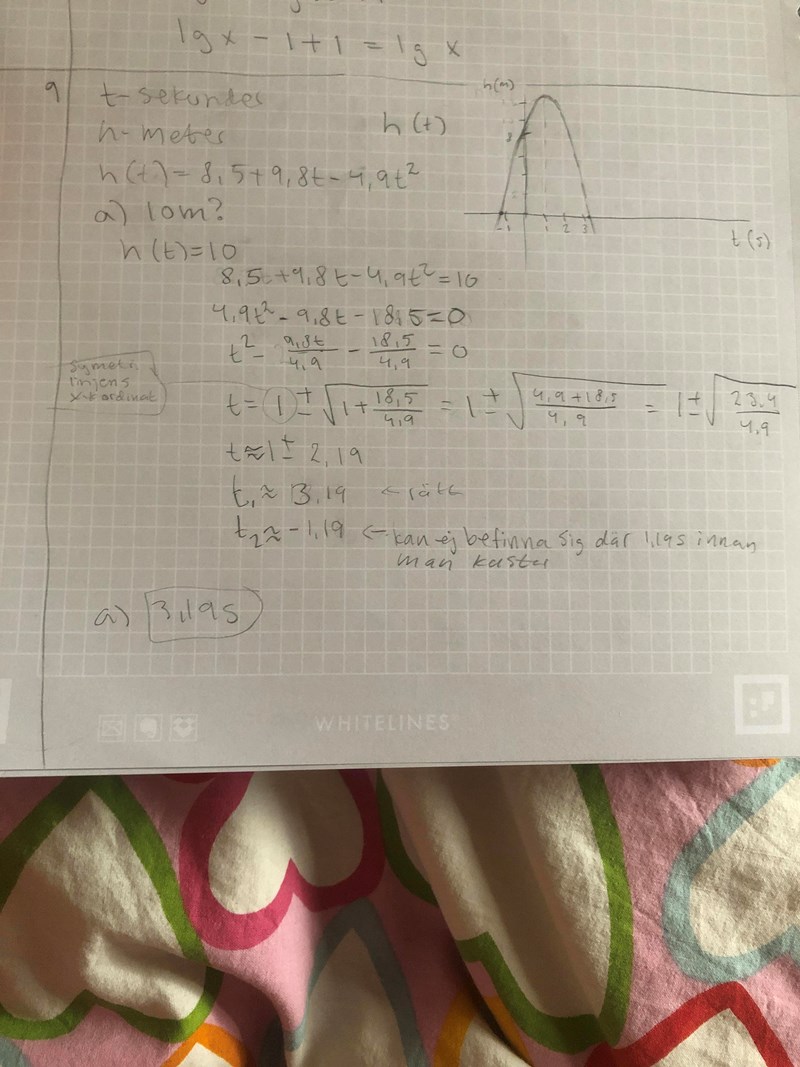 lg x - 1 + 1 = lg x
9
t - sekunder
h - meter
h(t)
h(t) = 8,5 + 9,8t - 4,9t²
a) 10m?
h(t) = 10
8,5t + 9,8t - 4,9t² = 10
4,9t² - 9,8t - 18,5 = 0
t² - 9,8t/4,9 - 18,5/4,9 = 0
symetri
linjens
x-kordinat
t = 1 ± √(1 + 18,5/4,9) = 1 ± √((4,9 + 18,5)/4,9) = 1 ± √(23,4/4,9)
t ≈ 1 ± 2,19
t₁ ≈ 3,19 ← rätt
t₂ ≈ -1,19 ← kan ej befinna sig där 1,19s innan
man kasta
a) 3,19s
h(m)
8
-1 1 2 3
t(s)
WHITELINES